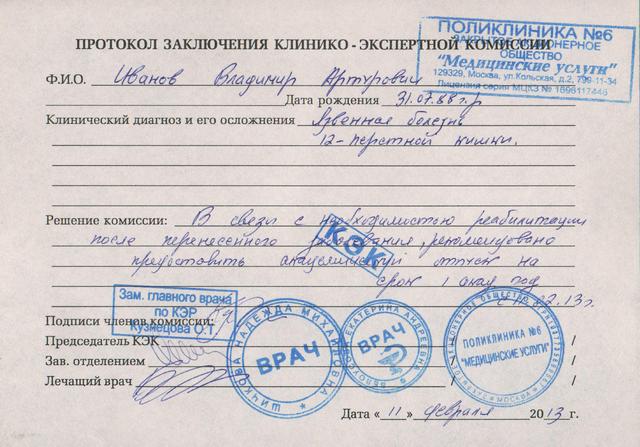 ПОЛИКЛИНИКА №6
ЗАКРЫТОЕ АКЦИОНЕРНОЕ
ОБЩЕСТВО
"Медицинские услуги"
129329, Москва, ул.Кольская, д.2, 799-11-34
Лицензия серия МЦКЗ № 1696117446
ПРОТОКОЛ ЗАКЛЮЧЕНИЯ КЛИНИКО - ЭКСПЕРТНОЙ КОМИССИИ
Ф.И.О. Иванов Владимир Артурович
Дата рождения 31.07.88 г.р
Клинический диагноз и его осложнения Язвенная болезнь
12-перстной кишки.
Решение комиссии: В связи с необходимостью реабилитации
после перенесенного заболевания, рекомендовано
предоставить академический отпуск на
срок 1 акад год
02.13г.
КЭК
Зам. главного врача
по КЭР
Кузнецова О.Т.
Подписи членов комиссии:
Председатель КЭК / /
Зав. отделением / /
Лечащий врач / /
ШИЧКОВА НАДЕЖДА МИХАЙЛОВНА
ВРАЧ
ЕКАТЕРИНА АНДРЕЕВНА
ВРАЧ
ПОЛИКЛИНИКА №6
"МЕДИЦИНСКИЕ УСЛУГИ"
МОСКВА
Дата « 11 » февраля 2013 г.